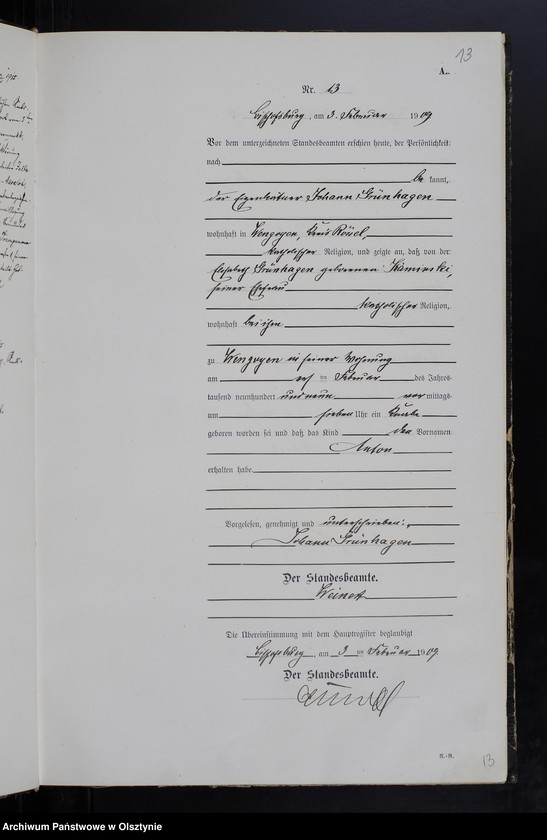 13
A.
Nr. 13
Bischofsburg, am 3. Februar 1909.
Vor dem unterzeichneten Standesbeamten erschien heute, der Persönlichkeit
nach
be kannt,
der Eigenkätner Johann Grünhagen
wohnhaft in Wengoyen, Kreis Rössel,
katholischer Religion, und zeigte an, daß von der
Elisabeth Grünhagen geborenen Kaminski,
seiner Ehefrau
katholischer Religion,
wohnhaft bei ihm
zu Wengoyen in seiner Wohnung
am ten Februar des Jahres
tausend neunhundert und neun vor mittags
um sieben Uhr ein Knabe
geboren worden sei und daß das Kind den Vornamen
Anton
erhalten habe.
Vorgelesen, genehmigt und unterschrieben:
Johann Grünhagen
Der Standesbeamte.
Die Übereinstimmung mit dem Hauptregister beglaubigt
Bischofsburg, am 3 ten Februar 1909.
Der Standesbeamte.
R.-R.
13
Archiwum Państwowe w Olsztynie